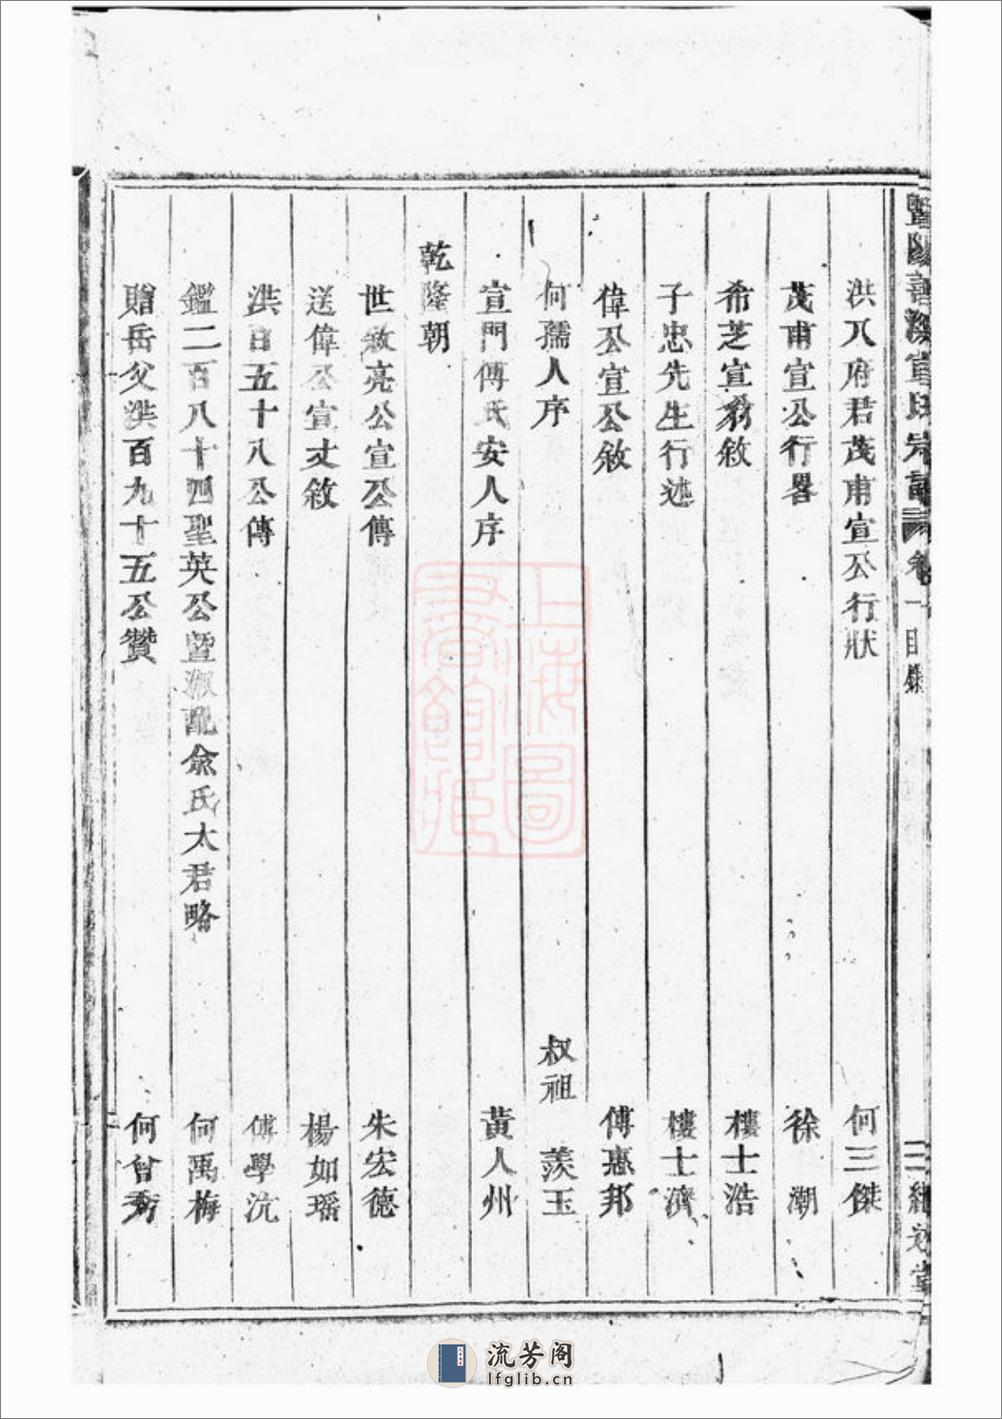 暨陽善溪宣氏宗譜 卷一目錄 二
洪八府君茂甫宣公行狀 何三傑
茂甫宣公行畧 徐潮
希芝宣翁敘 樓士浩
子忠先生行述 樓士濟
偉公宣公敘 傅惠邦
何孺人序 叔祖 羨玉
宣門傅氏安人序 黃人州
乾隆朝
世敘亮公宣公傳 朱宏德
送偉公宣丈敘 楊如瑶
洪百五十八公傳 傅學沆
鑑二百八十四聖英公暨淑配俞氏太君略 何禹梅
贈岳父洪百九十五公贊 何曾
上海圖書館藏
流芳阁
lfglib.cn